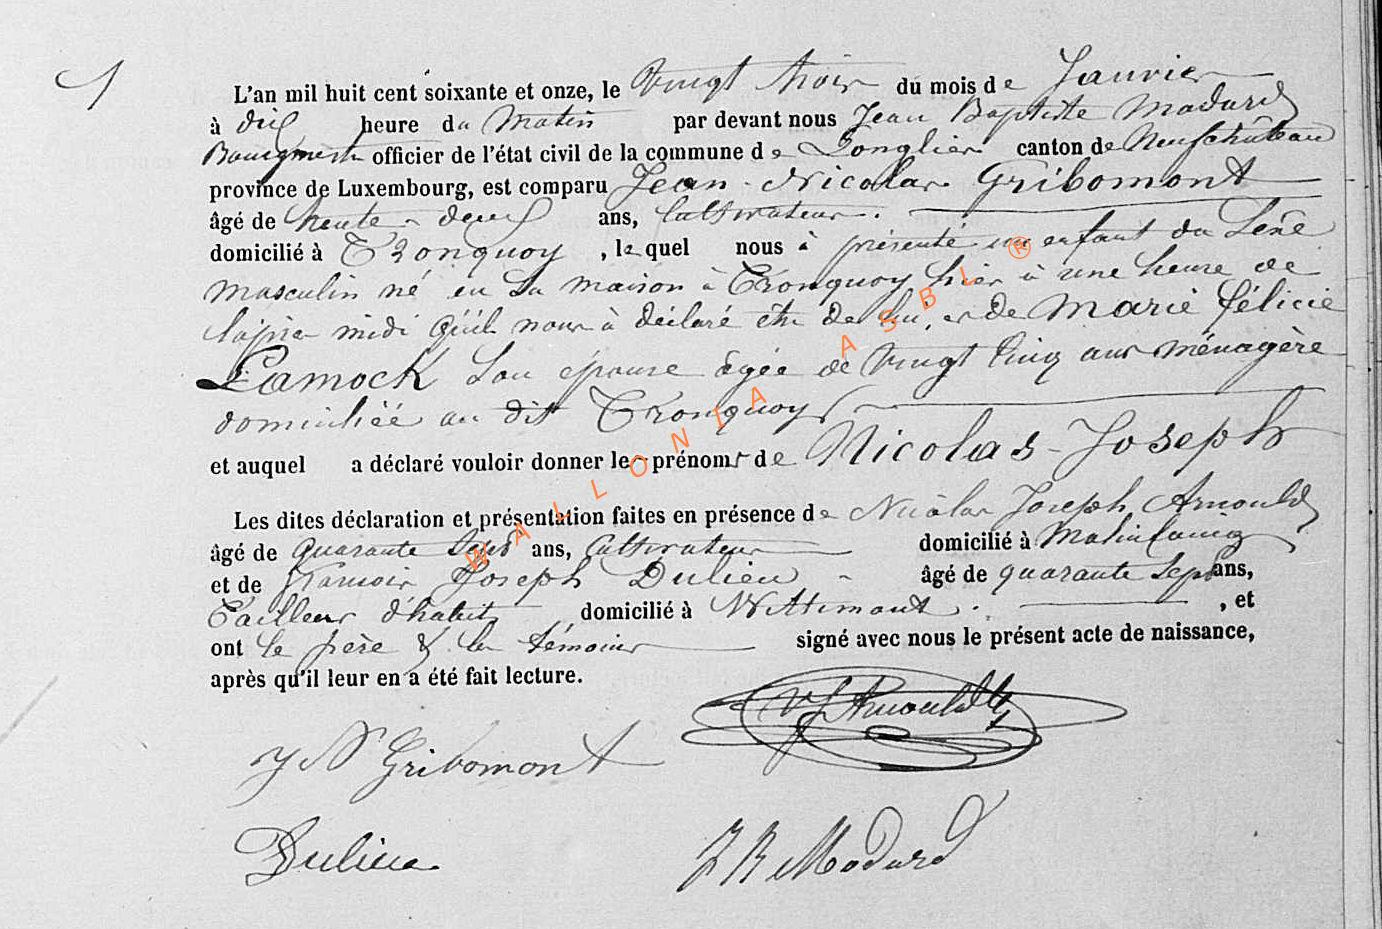 1
L'an mil huit cent soixante et onze, le Vingt trois du mois de Janvier
à dix heure du Matin par devant nous Jean Baptiste Modard
Bourgmestre officier de l'état civil de la commune de Longlier canton de Neufchâteau
province de Luxembourg, est comparu Jean-Nicolas Gribomont
âgé de trente-deux ans, Cultivateur.
domicilié à Tronquoy, lequel nous à présenté un enfant du Sexe
masculin né en sa maison à Tronquoy hier à une heure de
l'après midi qu'il nous à déclaré être de lui, et de Marie Félicie
Lamock son épouse âgée de vingt cinq ans ménagère
domiciliée au dit Tronquoy
et auquel a déclaré vouloir donner les prénoms de Nicolas-Joseph
Les dites déclaration et présentation faites en présence de Nicolas Joseph Arnould
âgé de quarante sept ans, Cultivateur domicilié à
et de François Joseph Dulieu âgé de quarante sept ans,
Tailleur d'habits domicilié à Wittimont. , et
ont le père & les témoins signé avec nous le présent acte de naissance,
après qu'il leur en a été fait lecture.
NJ Arnould
JN Gribomont
Dulieu
JB Modard
WALLONIA ASBL ®